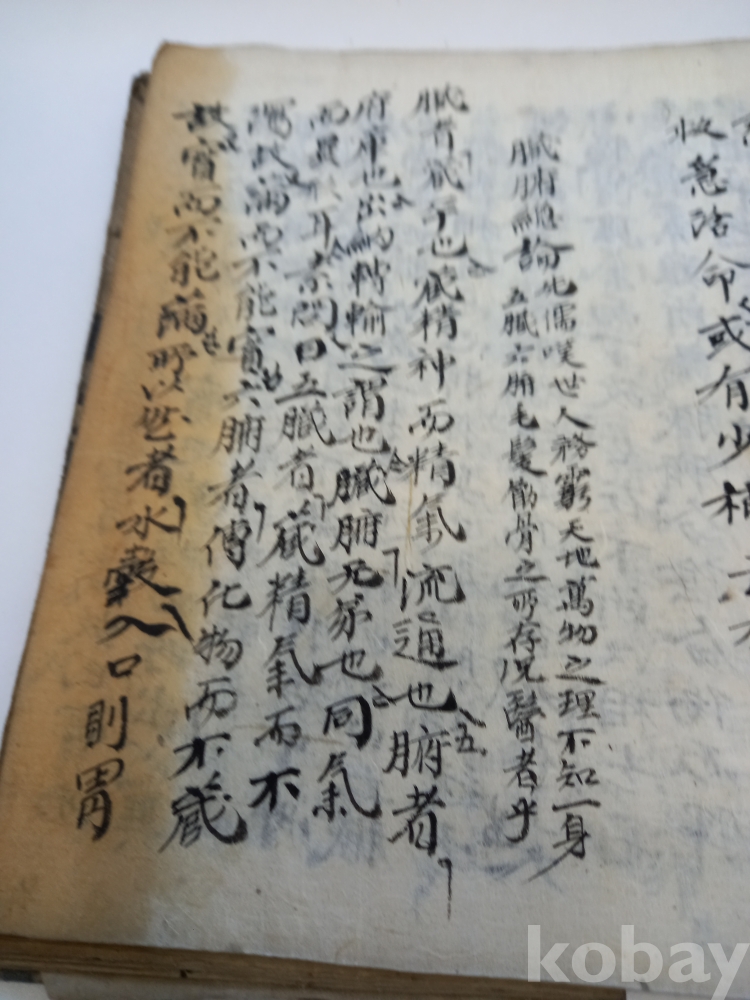 急活命或有少
臟腑總論
先儒嘆世人務窮天地萬物之理不知一身
五臟六腑毛髮筋骨之所存况醫者乎
臟者藏乎也藏精神而精氣流通也五腑者
府庫也出納轉輸之謂也臟腑兄弟也同氣
而異形耳素問曰五臟者藏精氣而不
瀉故滿而不能實六腑者傳化物而不藏
故實而不能滿所以然者水穀入口則胃
kobay